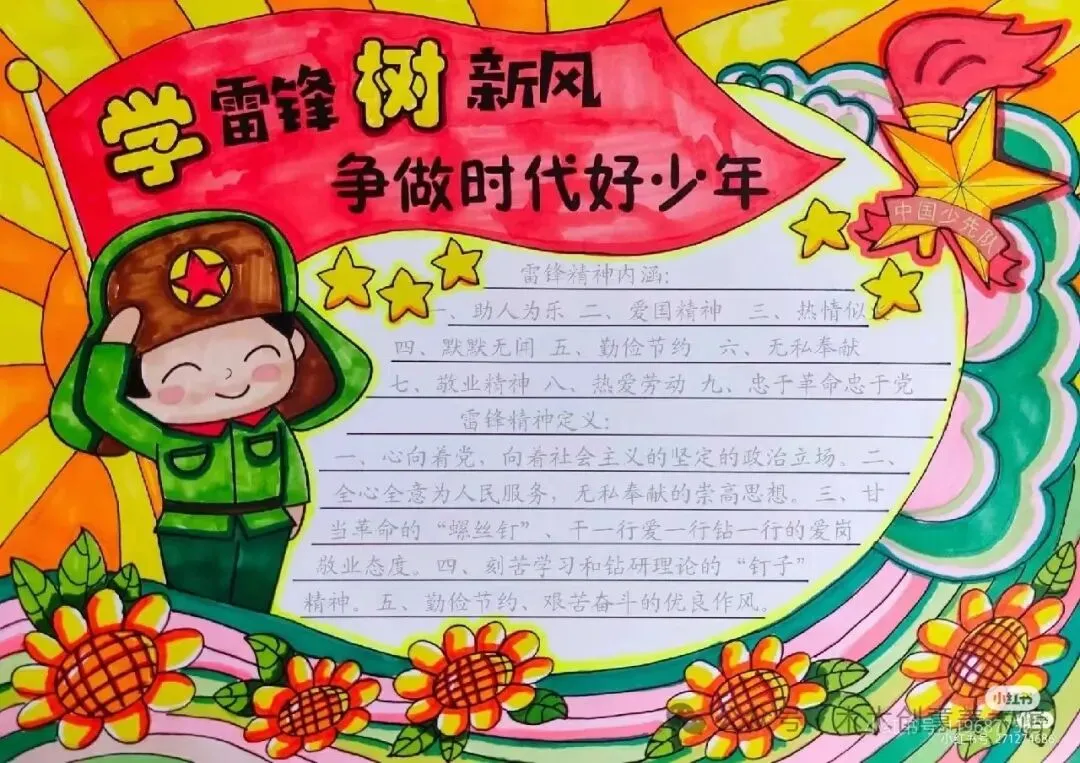 学雷锋树新风
争做时代好少年
中国少先队
雷锋精神内涵:
一、助人为乐 二、爱国精神 三、热情似
四、默默无闻 五、勤俭节约 六、无私奉献
七、敬业精神 八、热爱劳动 九、忠于革命忠于党
雷锋精神定义:
一、心向着党，向着社会主义的坚定的政治立场。二、
全心全意为人民服务，无私奉献的崇高思想。三、甘
当革命的“螺丝钉”、干一行爱一行钻一行的爱岗
敬业态度。四、刻苦学习和钻研理论的“钉子”
精神。五、勤俭节约、艰苦奋斗的优良作风。
小红书